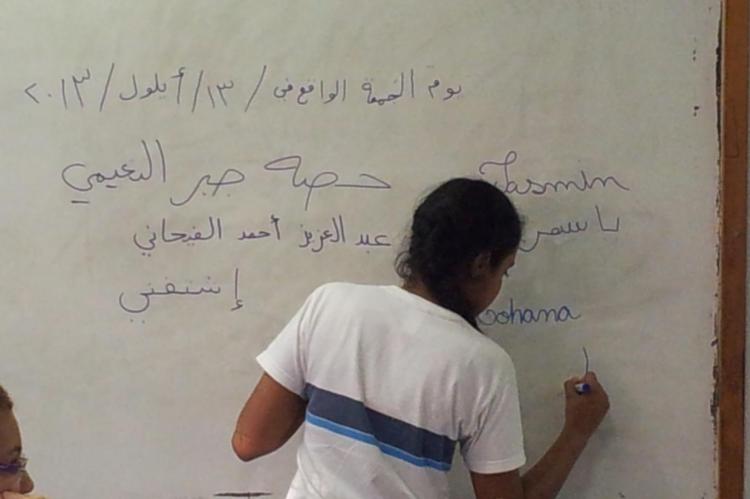 يوم الجمعة الواقع في / ١٣ / أيلول / ٢٠١٣
حصة جبر النعيمي
Jasmin
عبد العزيز أحمد الفيحاني
ياسمين
إشتقتلي
ohana